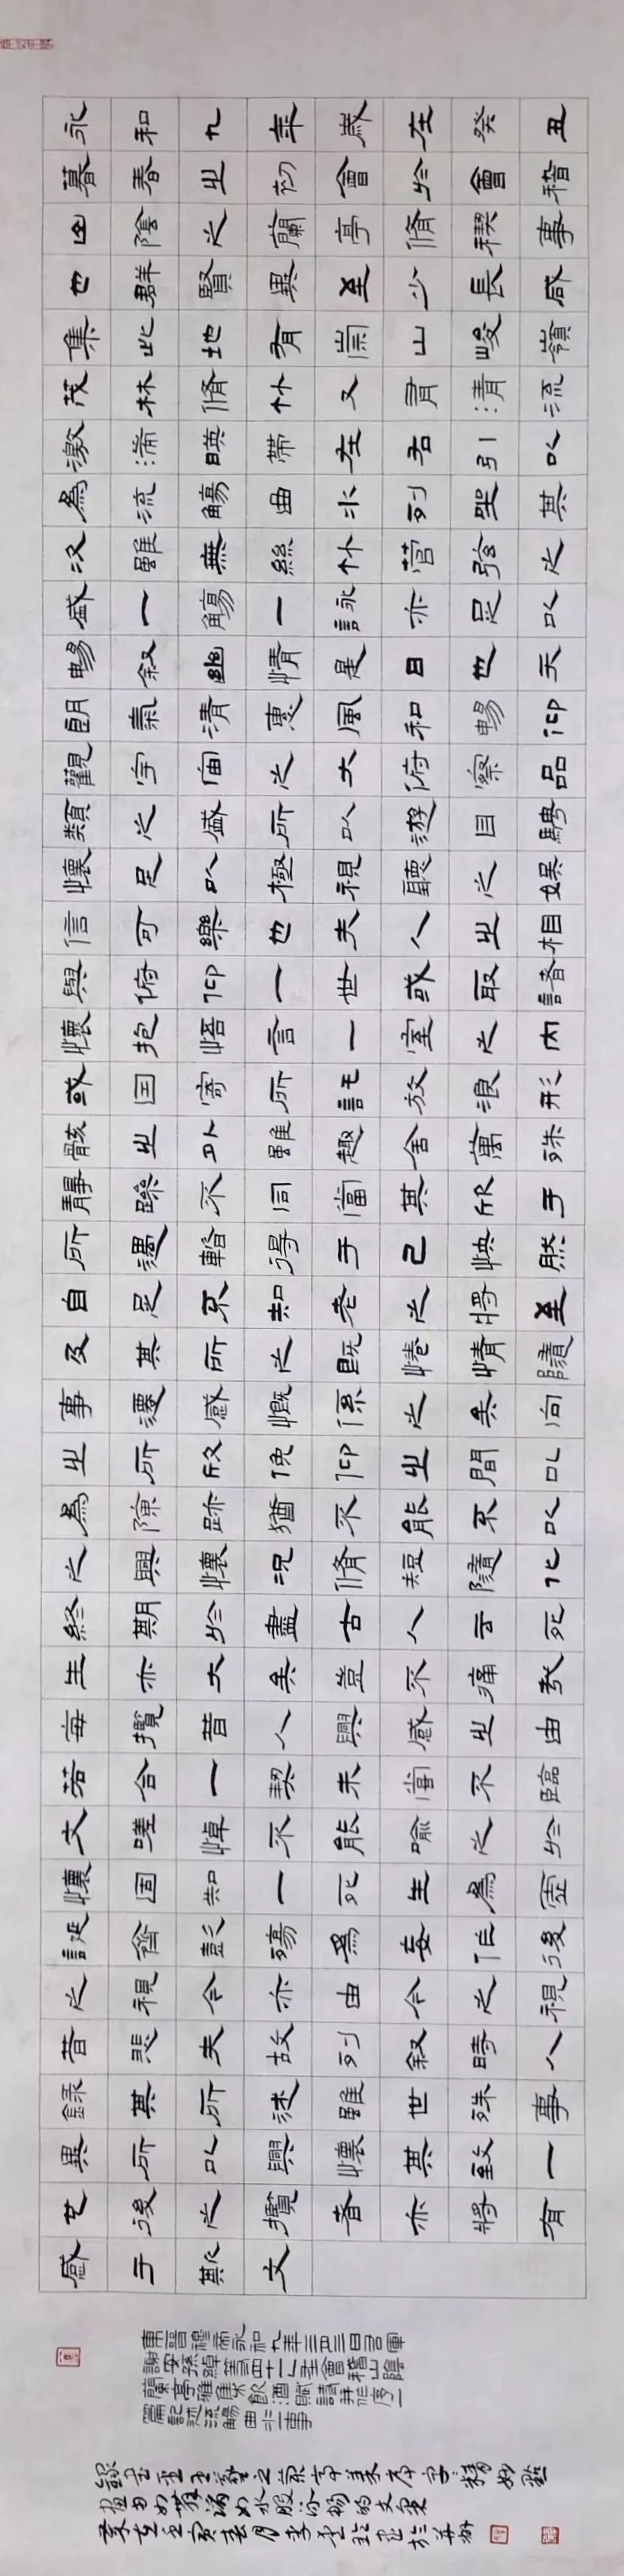 永和九年歲在癸丑
暮春之初會於會稽
山陰之蘭亭脩禊事
也群賢畢至少長咸
集此地有崇山峻嶺
茂林脩竹又有清流
激湍暎帶左右引以
為流觴曲水列坐其
次雖無絲竹管弦之
盛一觴一詠亦足以
暢敘幽情是日也天
朗氣清惠風和暢仰
觀宇宙之大俯察品
類之盛所以遊目騁
懷足以極視聽之娛
信可樂也夫人之相
與俯仰一世或取諸
懷抱悟言一室之內
或因寄所託放浪形
骸之外雖趣舍萬殊
靜躁不同當其欣于
所遇暫得于己快然
自足不知老之將至
及其所之既惓情隨
事遷感慨係之矣向
之所欣俛仰之間以
為陳跡猶不能不以
之興懷況脩短隨化
終期於盡古人云死
生亦大矣豈不痛哉
每攬昔人興感之由
若合一契未嘗不臨
文嗟悼不能喻之於
懷固知一死生為虛
誕齊彭殤為妄作後
之視今亦由今之視
昔悲夫故列敘時人
錄其所述雖世殊事
異所以興懷其致一
也後之攬者亦將有
感于斯文
東晉穆帝永和九年三月三日右軍
謝安孫綽等四十一人至會稽山陰
蘭亭雅集飲酒賦詩并作序一
篇記述流觴曲水一事
錄書聖王羲之蘭亭集序
歲在壬寅春月李